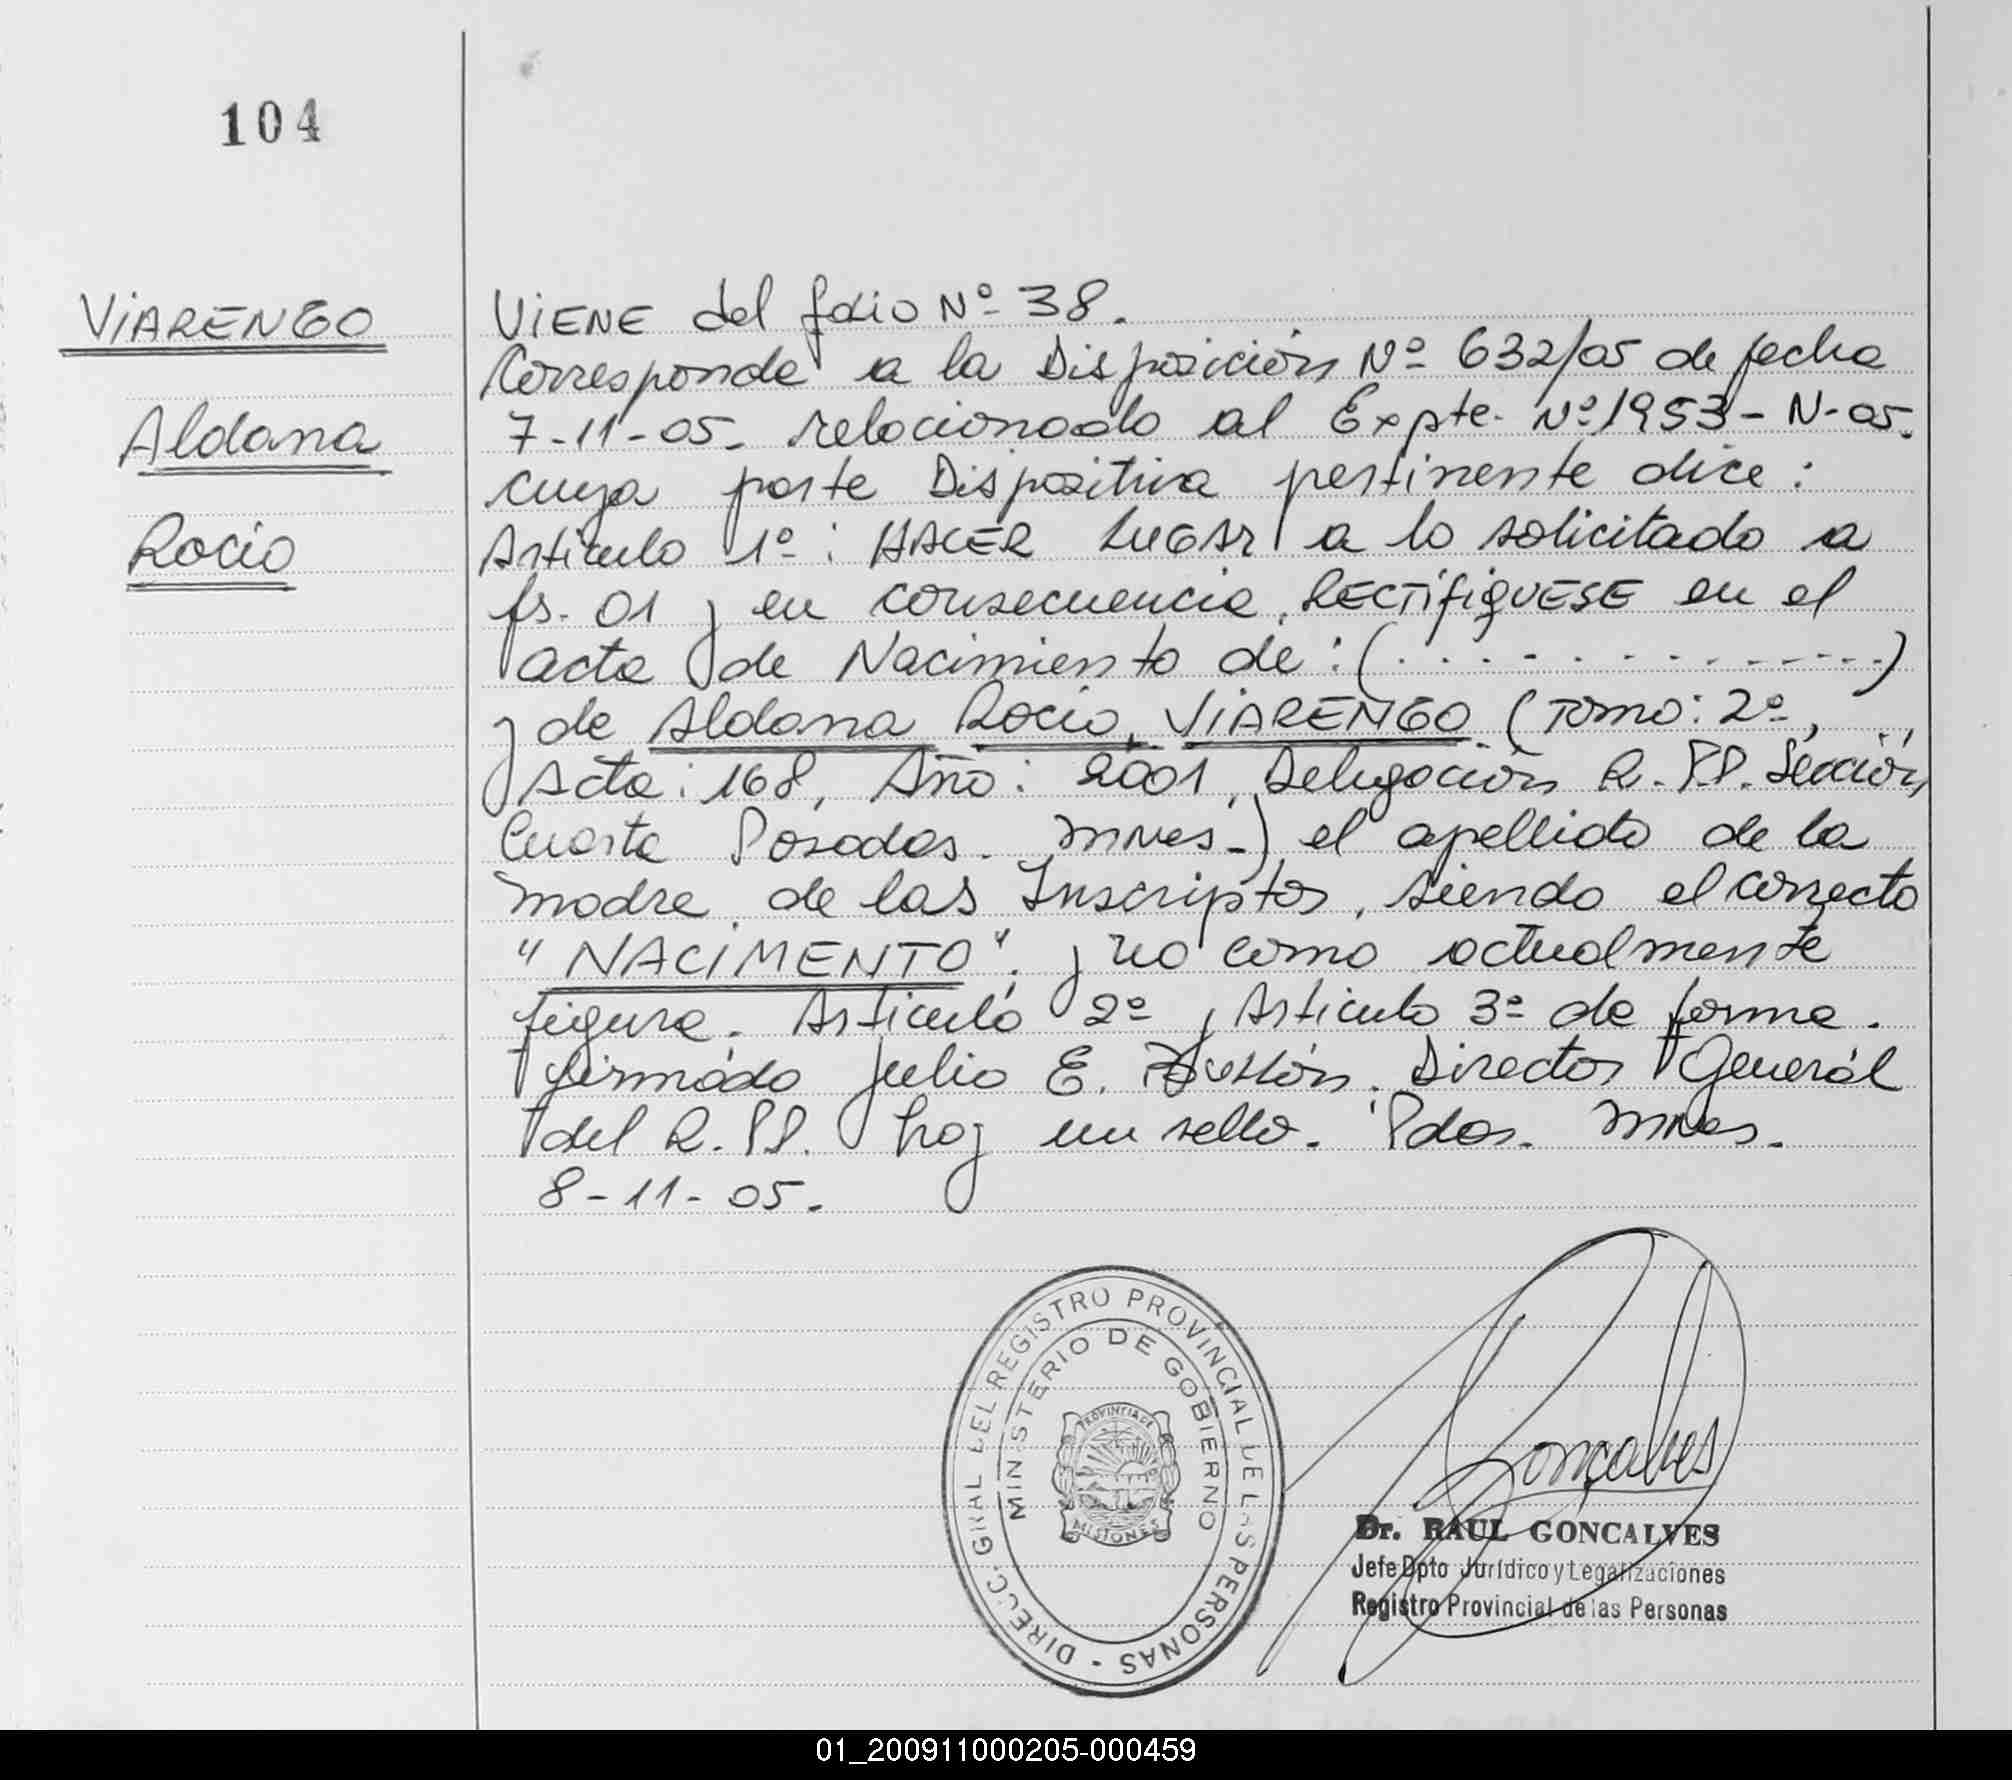 104
VIARENGO
Aldana
Rocio
VIENE del folio Nº 38.
Corresponde a la Disposición Nº 632/05 de fecha
7-11-05. relacionado al Expte. Nº 1953-N-05.
cuya parte Dispositiva pertinente dice:
Artículo 1º: HACER LUGAR a lo solicitado a
fs. 01 y en consecuencia, RECTIFIQUESE en el
acta de Nacimiento de: (. . . . . . . . . . . . . .)
y de Aldana Rocio, VIARENGO (Tomo: 2º,
Acta: 168, Año: 2001, Delegación R.PP. Sección
Cuarta Posadas. Mnes.-) el apellido de la
madre de las Inscriptas, siendo el correcto
"NACIMENTO". y no como actualmente
figura. Artículo 2º y Artículo 3º de forma.
firmado Julio E. Director General
del R.PP. hay un sello. Pdas. Mnes.
8-11-05.
DIRECC. GRAL DEL REGISTRO PROVINCIAL DE LAS PERSONAS -
MINISTERIO DE GOBIERNO
PROVINCIA DE
MISIONES
Gonçalves
Dr. RAUL GONCALVES
Jefe Dpto Jurídico y Legalizaciones
Registro Provincial de las Personas
01_200911000205-000459